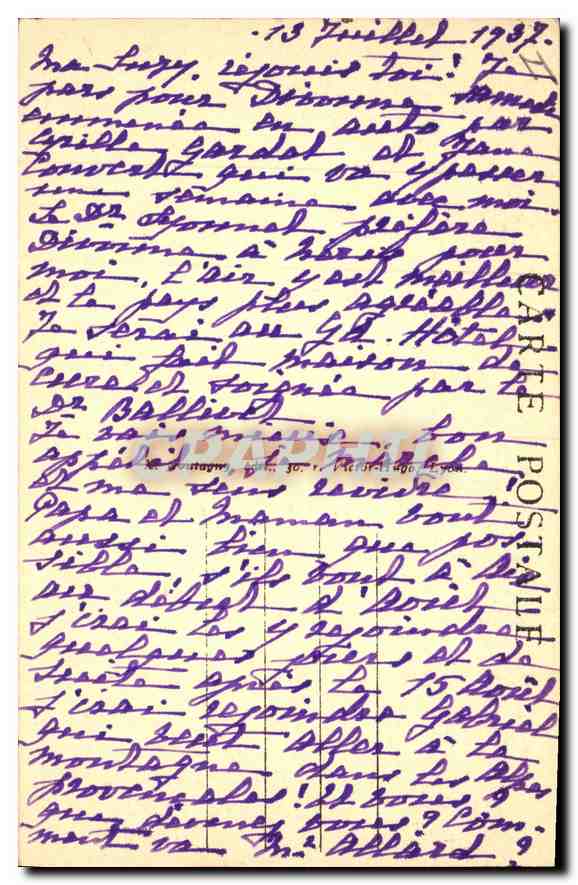 13 Juillet 1937.
Ma Suzy, réjouis toi! Je
pars pour Divonne
emmenée en auto par
Cyrille Gardet et Jane
qui va y passer
une semaine avec moi.
Le Dr préfère
Divonne à pour
moi, l'air y est meilleur
et le pays plus agréable.
Je serai au Gd. Hôtel
qui fait maison de
cure et soignée par le
Dr
Je vais mieux, bon
et me sens revivre!
Papa et Maman vont
aussi bien que pos-
sible! s'ils vont à
au début d'Août
j'irai les y rejoindre
quelques jours et de
suite après le 15 Août
j'irai rejoindre Gabriel
qui veut aller à la
montagne dans les Alpes
provençales! Et vous?
que devenez vous? Com-
ment va Mr Allard?
CARTE POSTALE
X. Goutagny, édit., 30, r. Victor-Hugo, Lyon.
CPAPHIL